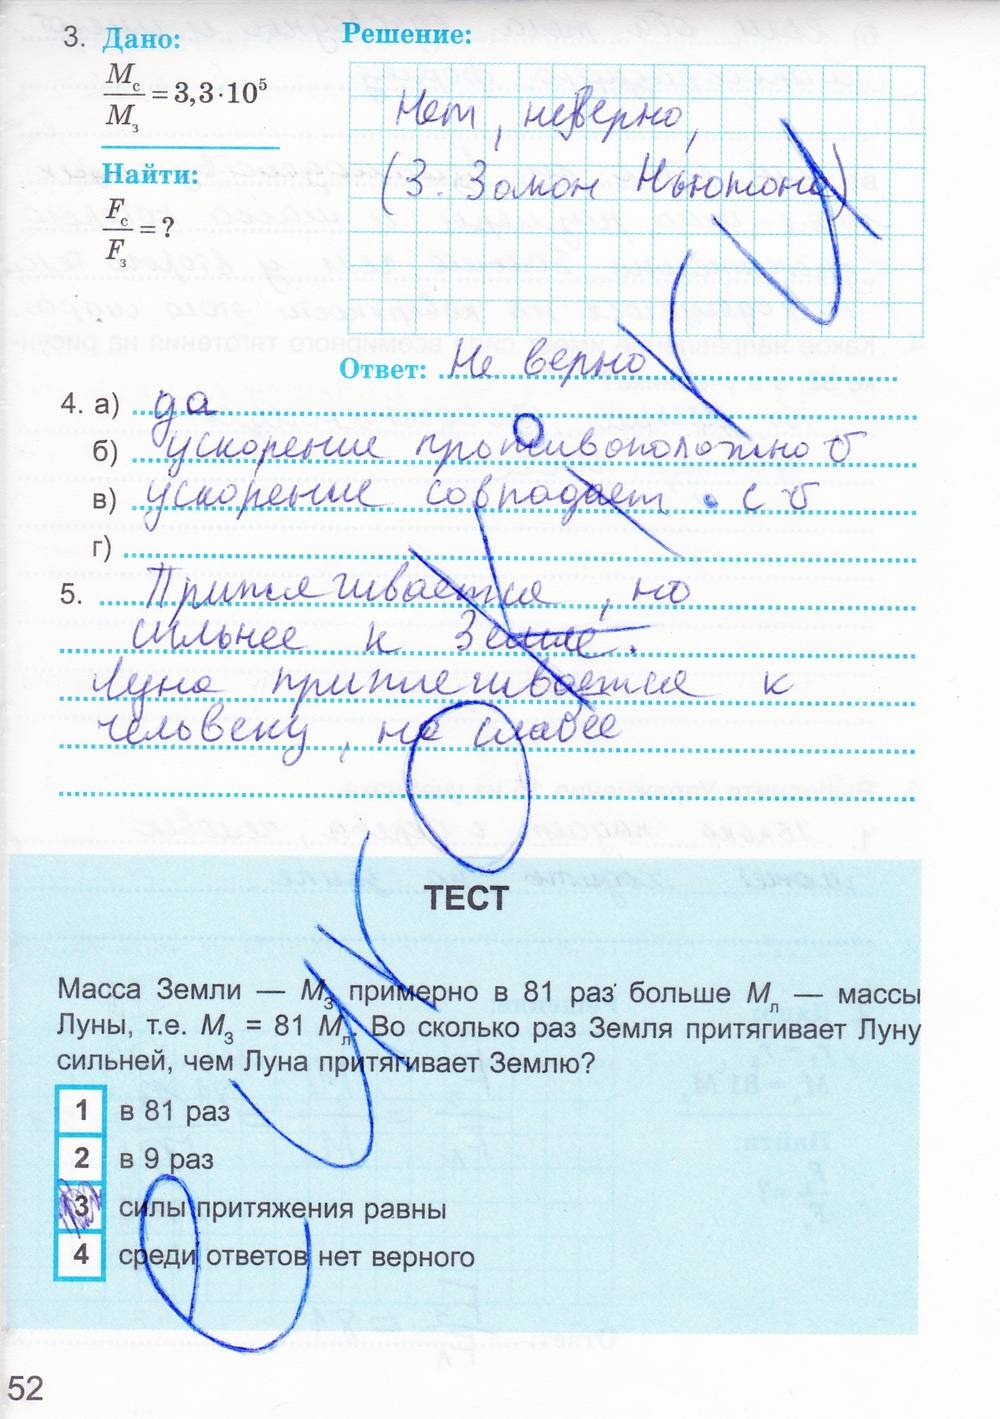 3. Дано: Решение:
Mс/Mз = 3,3·10⁵
Нет, неверно,
Найти:
(3. Закон Ньютона)
Fс/Fз = ?
Ответ: Не верно
4. а) да
б) ускорение противоположно v
в) ускорение совпадает с v
г)
5. Притягивается, но
сильнее к Земле.
Луна притягивается к
человеку, но слабее
ТЕСТ
Масса Земли — Mз примерно в 81 раз больше Mл — массы
Луны, т.е. Mз = 81 Mл. Во сколько раз Земля притягивает Луну
сильней, чем Луна притягивает Землю?
1 в 81 раз
2 в 9 раз
3 силы притяжения равны
4 среди ответов нет верного
52